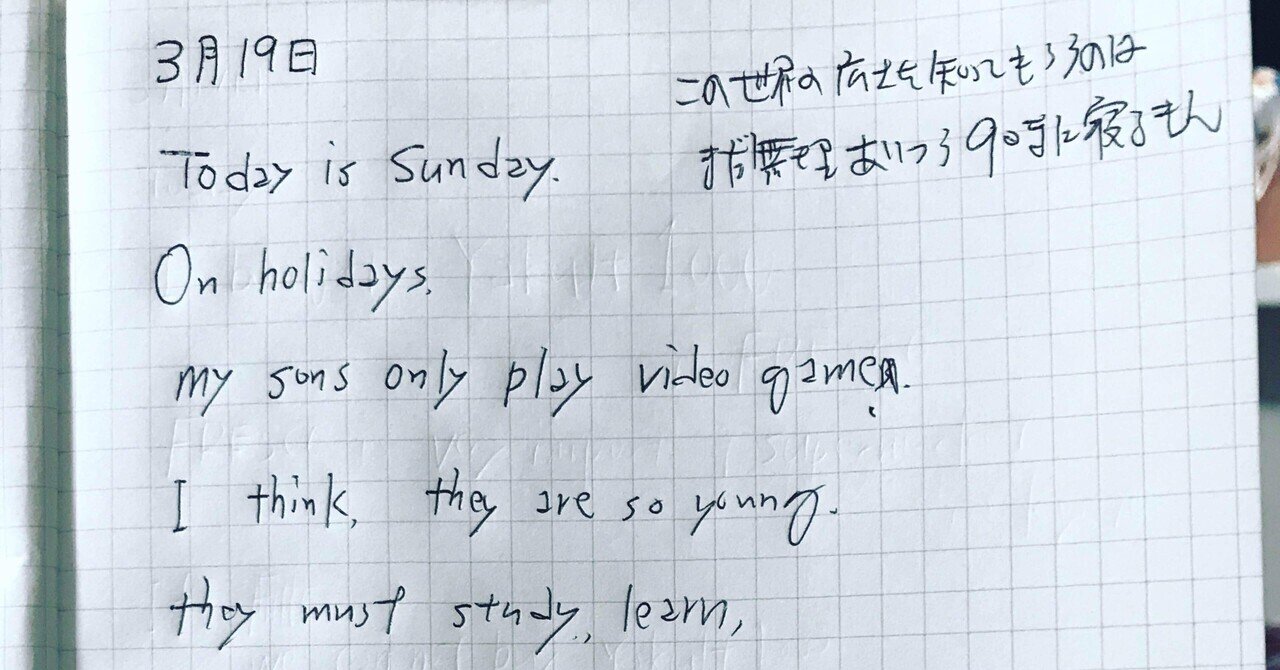 3月19日
この世界の広さを知ってもらうのは
まだ無理 あいつら9時に寝るもん
Today is Sunday.
On holidays,
my sons only play video game.
I think, they are so young.
they must study, learn,